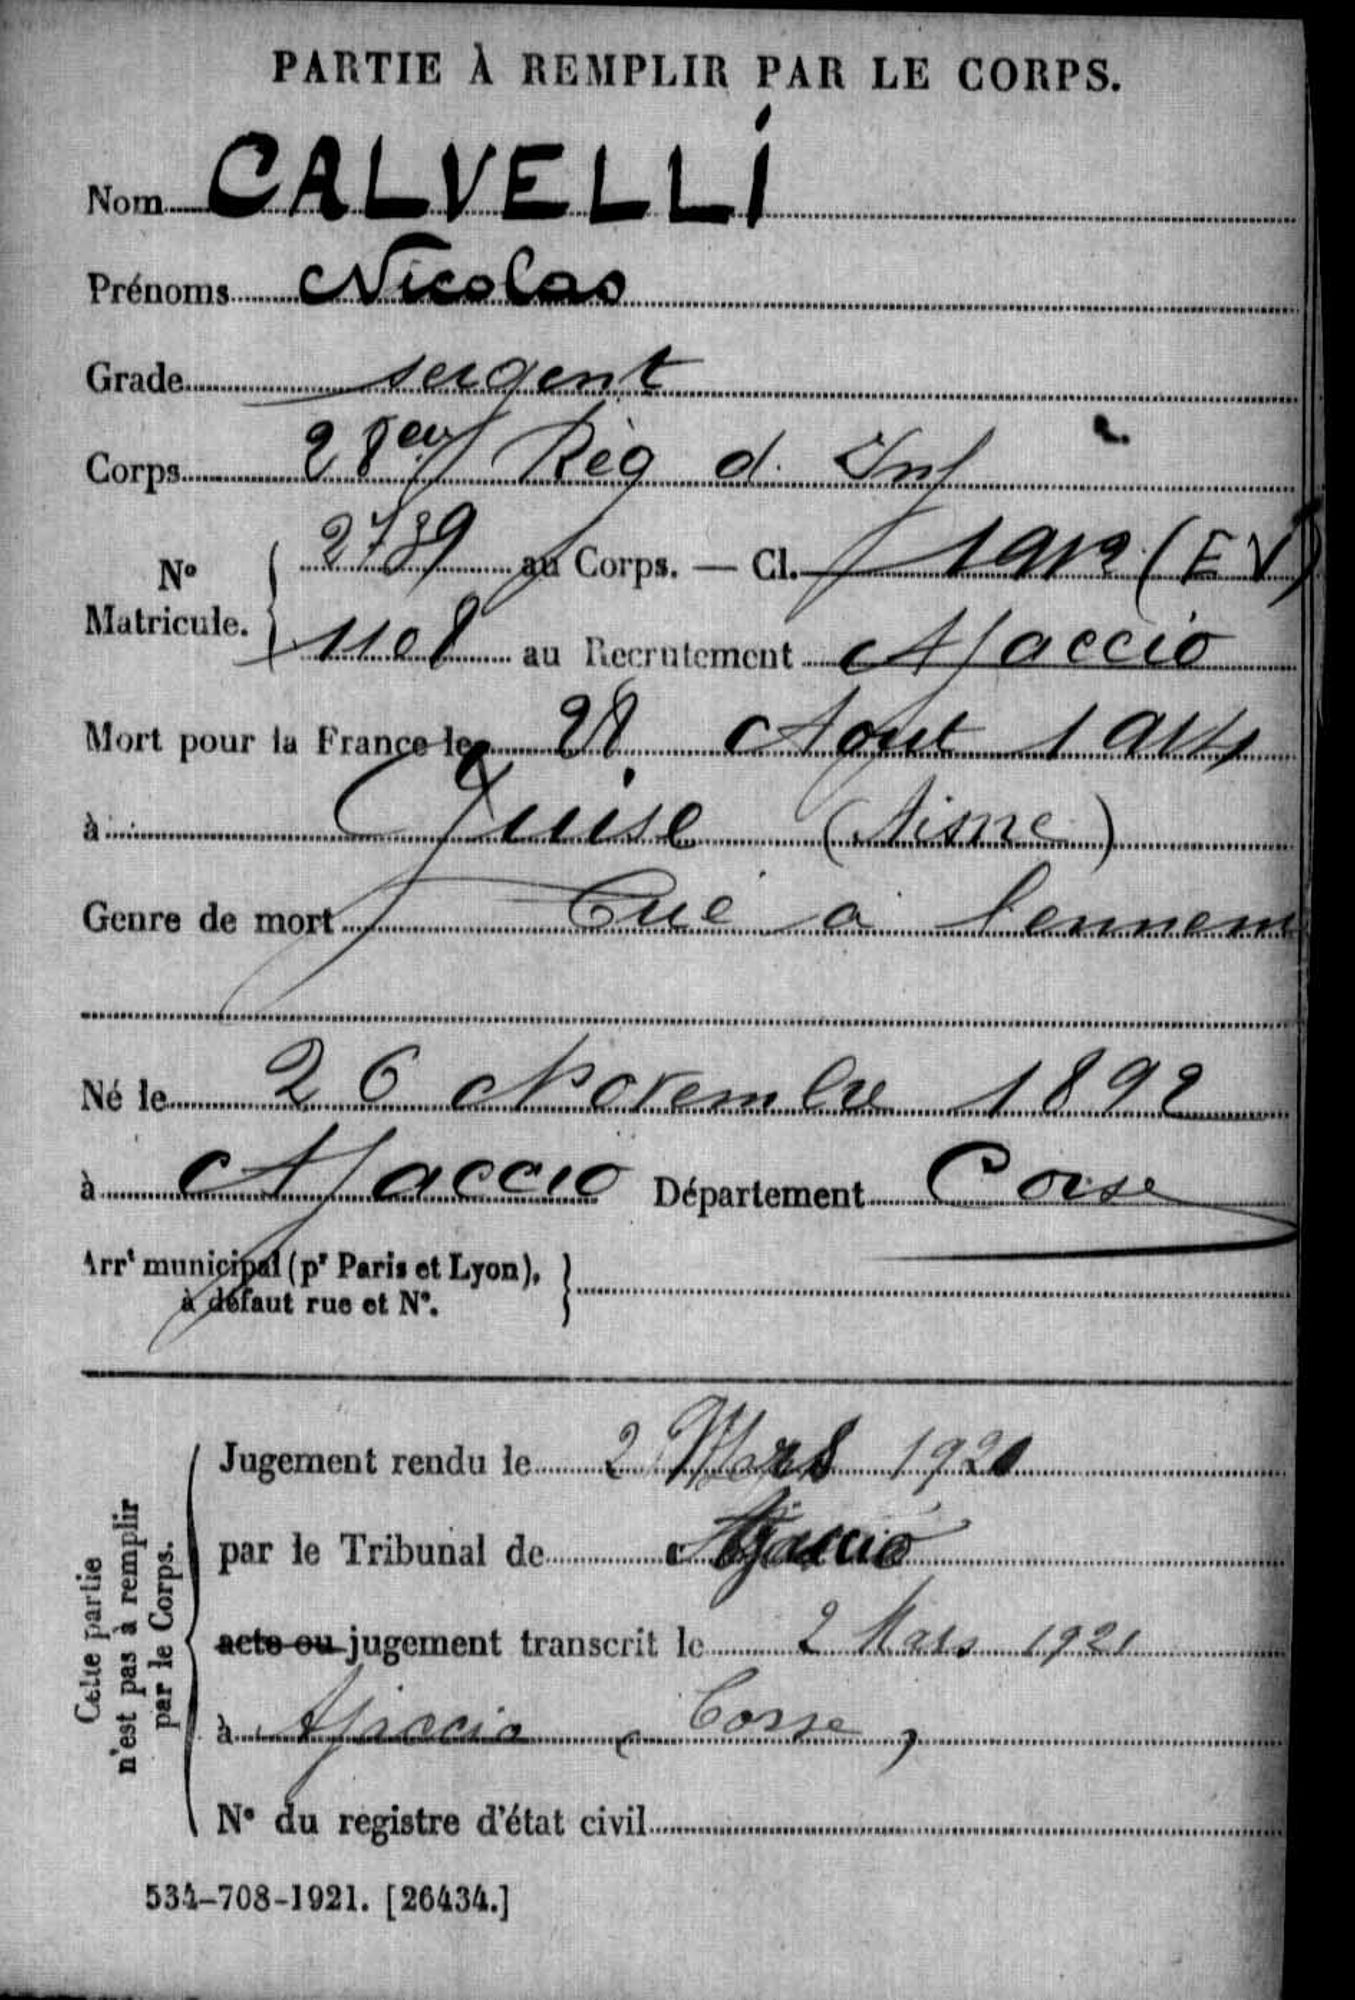 PARTIE À REMPLIR PAR LE CORPS.
Nom CALVELLI
Prénoms Nicolas
Grade sergent
Corps 28em Règ d. Inf
N° Matricule. { 2739 au Corps. — Cl. 1912 (EV)
1108 au Recrutement Ajaccio
Mort pour la France le 28 Aout 1914
à Guise (Aisne)
Genre de mort Tué a l'ennemi
Né le 26 Novembre 1892
à Ajaccio Département Corse
Arrt municipal (pr Paris et Lyon), }
à défaut rue et N°.
Cette partie
n'est pas à remplir
par le Corps.
Jugement rendu le 2 Mars 1921
par le Tribunal de Ajaccio
acte ou jugement transcrit le 2 Mars 1921
à Ajaccio (Corse)
N° du registre d'état civil
534-708-1921. [26434.]